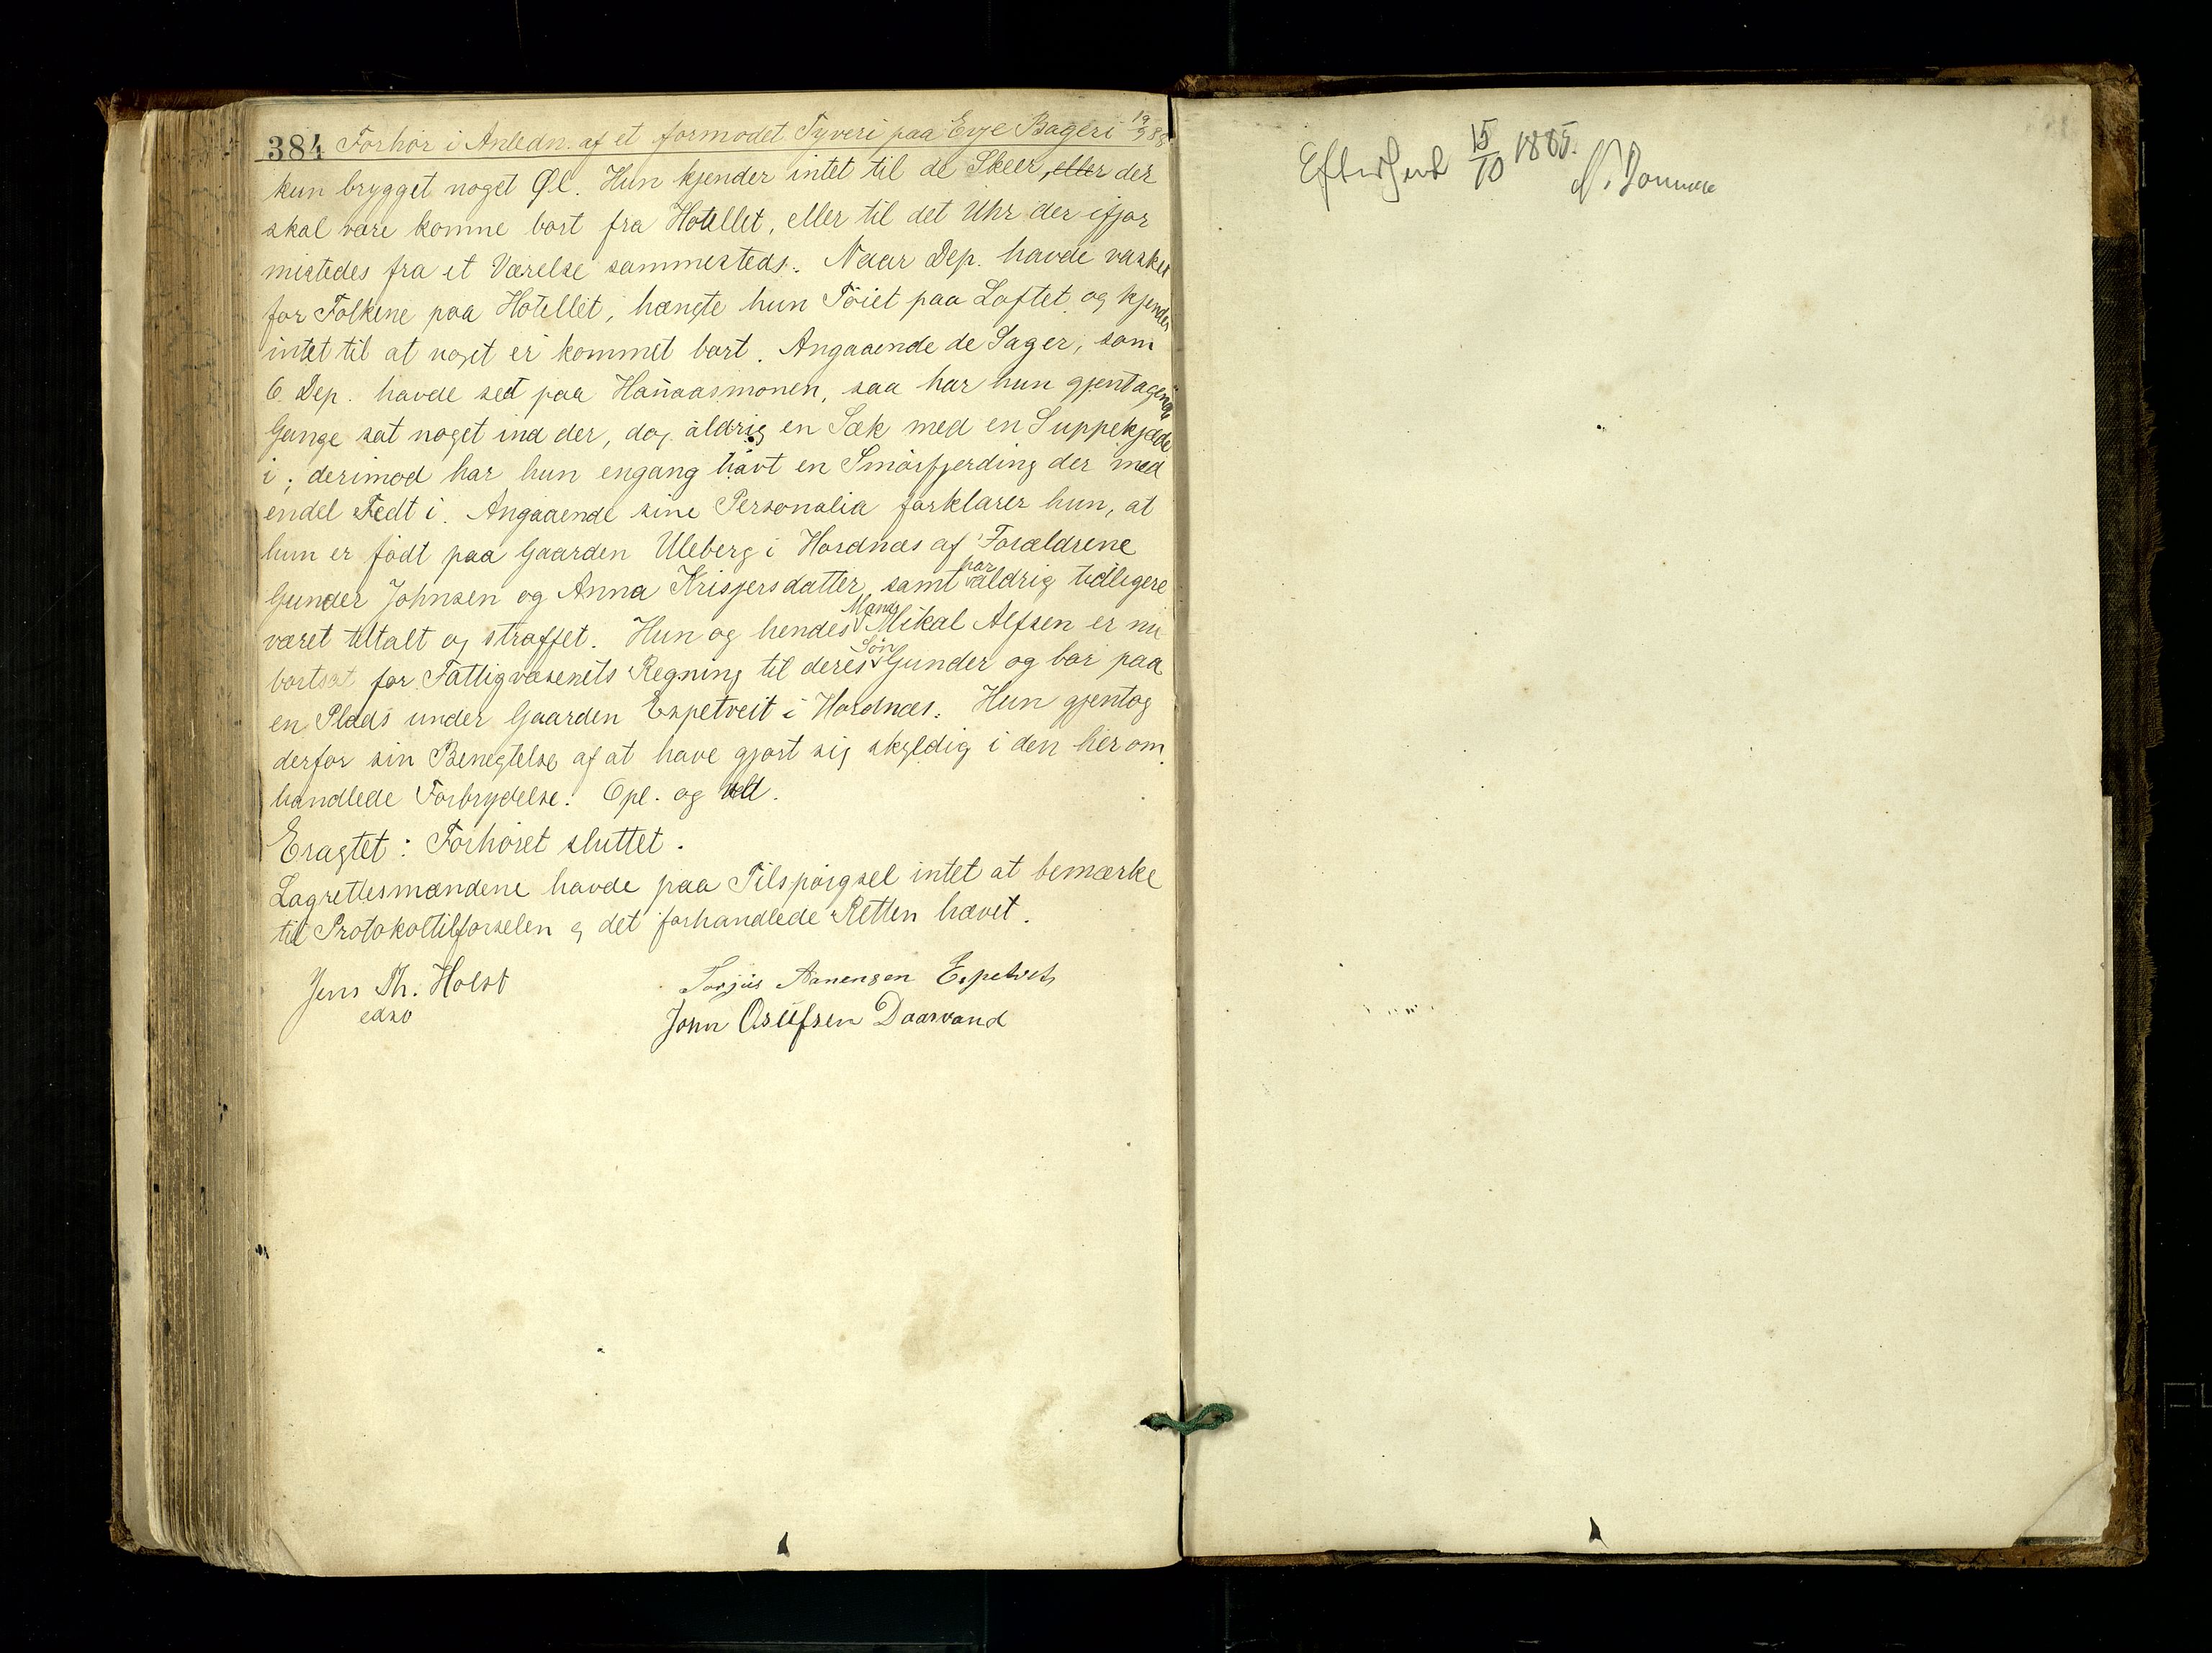 384 Forhør i Anledn. af et formodet Tyveri paa Evje Bageri 19/9 88
kun brygget noget Øl. Hun kjender intet til de Skeer, eller der
skal være komne bort fra Hotellet, eller til det Uhr der ifjor
mistedes fra et Værelse sammesteds. Naar Dep. havde vasket
for Folkene paa Hotellet, hængte hun Töiet paa Loftet og kjender
intet til at noget er kommet bort. Angaaende de Sager, som
6. Dep. havde set paa Hanaasmonen, saa har hun gjentagende
Gange sat noget ind der, dog aldrig en Sæk med en Suppekjedel
i; derimod har hun engang havt en Smörfjerding der med
endel Fedt i. Angaaende sine Personalia forklarer hun, at
hun er født paa Gaarden Uleberg i Hordnæs af Forældrene
Gunder Johnsen og Anna Krisjersdatter, samt har aldrig tidligere
været tiltalt og straffet. Hun og hendes Mand Mikal Alfsen er nu
bortsat for Fattigvæsenets Regning til deres Søn Gunder og bor paa
en Plads under Gaarden Espetveit i Hordnæs. Hun gjentog
derfor sin Benegtelse af at have gjort sig skyldig i den her om
handlede Forbrydelse. Opl. og vdt.
Eragtet: Forhöret sluttet.
Lagrettesmændene havde paa Tilspörgsel intet at bemærke
til Protokoltilførselen og det forhandlede Retten hævet.
Jens Th. Holst Torjus Aanensen Espetveit
edso John Osufsen Daasvand
15/10 1885.